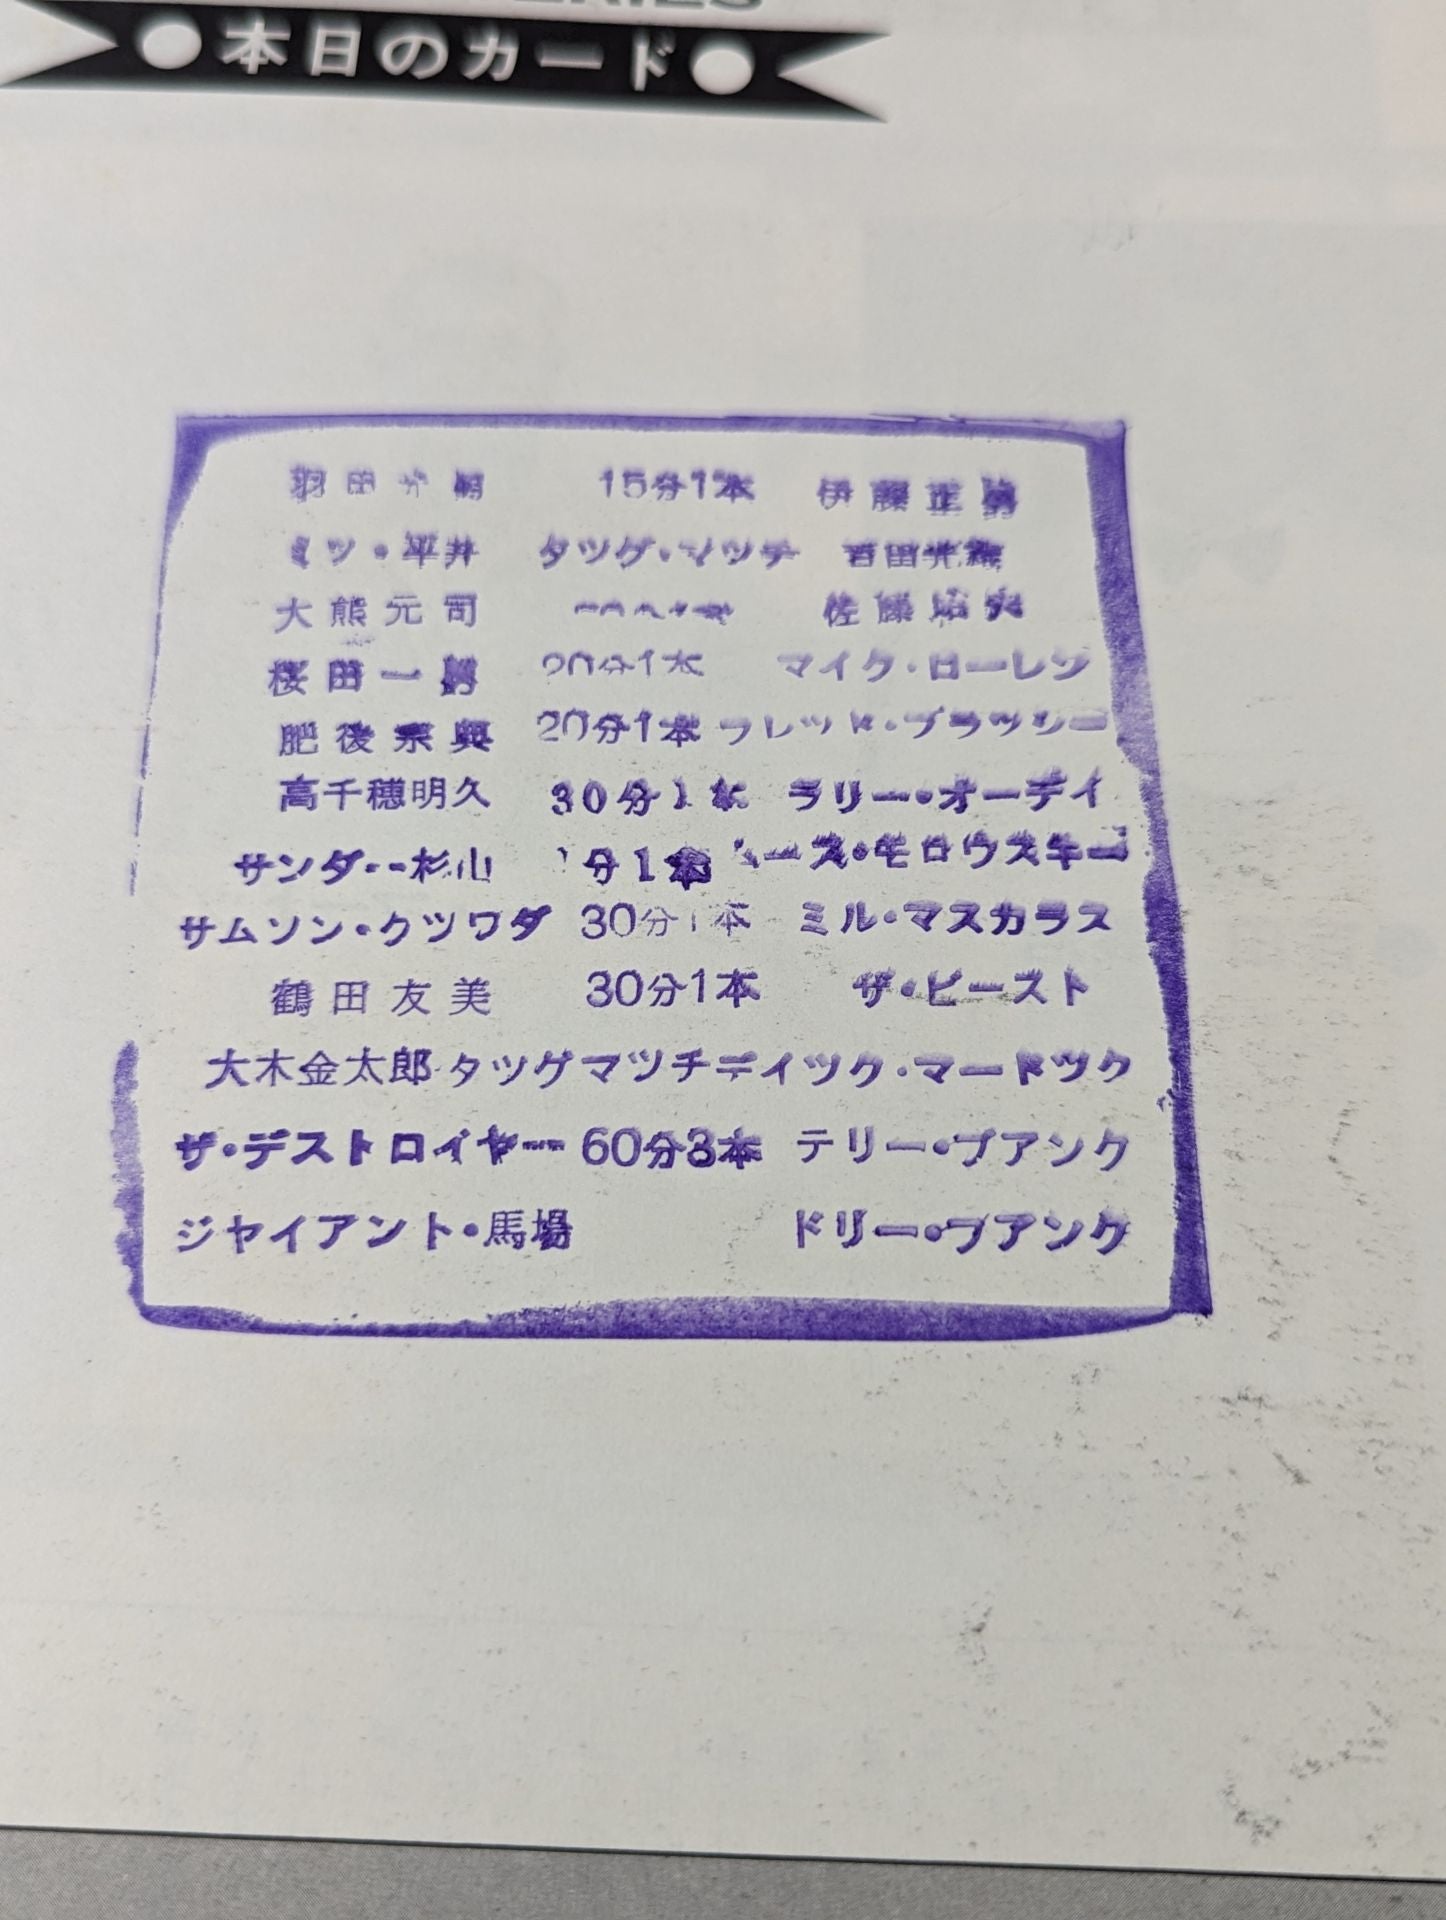 本日のカード
15分1本 伊藤正男
ミツ・平井 タツグ・マツチ 百田光雄
大熊元司 佐藤昭夫
桜田一男 20分1本 マイク・ローレン
肥後宗典 20分1本 フレツド・ブラツシー
高千穂明久 30分1本 ラリー・オーデイ
サンダー杉山 分1本 ース・モロウスキー
サムソン・クツワダ 30分1本 ミル・マスカラス
鶴田友美 30分1本 ザ・ビースト
大木金太郎 タツグマツチ デイツク・マードツク
ザ・デストロイヤー 60分3本 テリー・フアンク
ジヤイアント・馬場 ドリー・フアンク